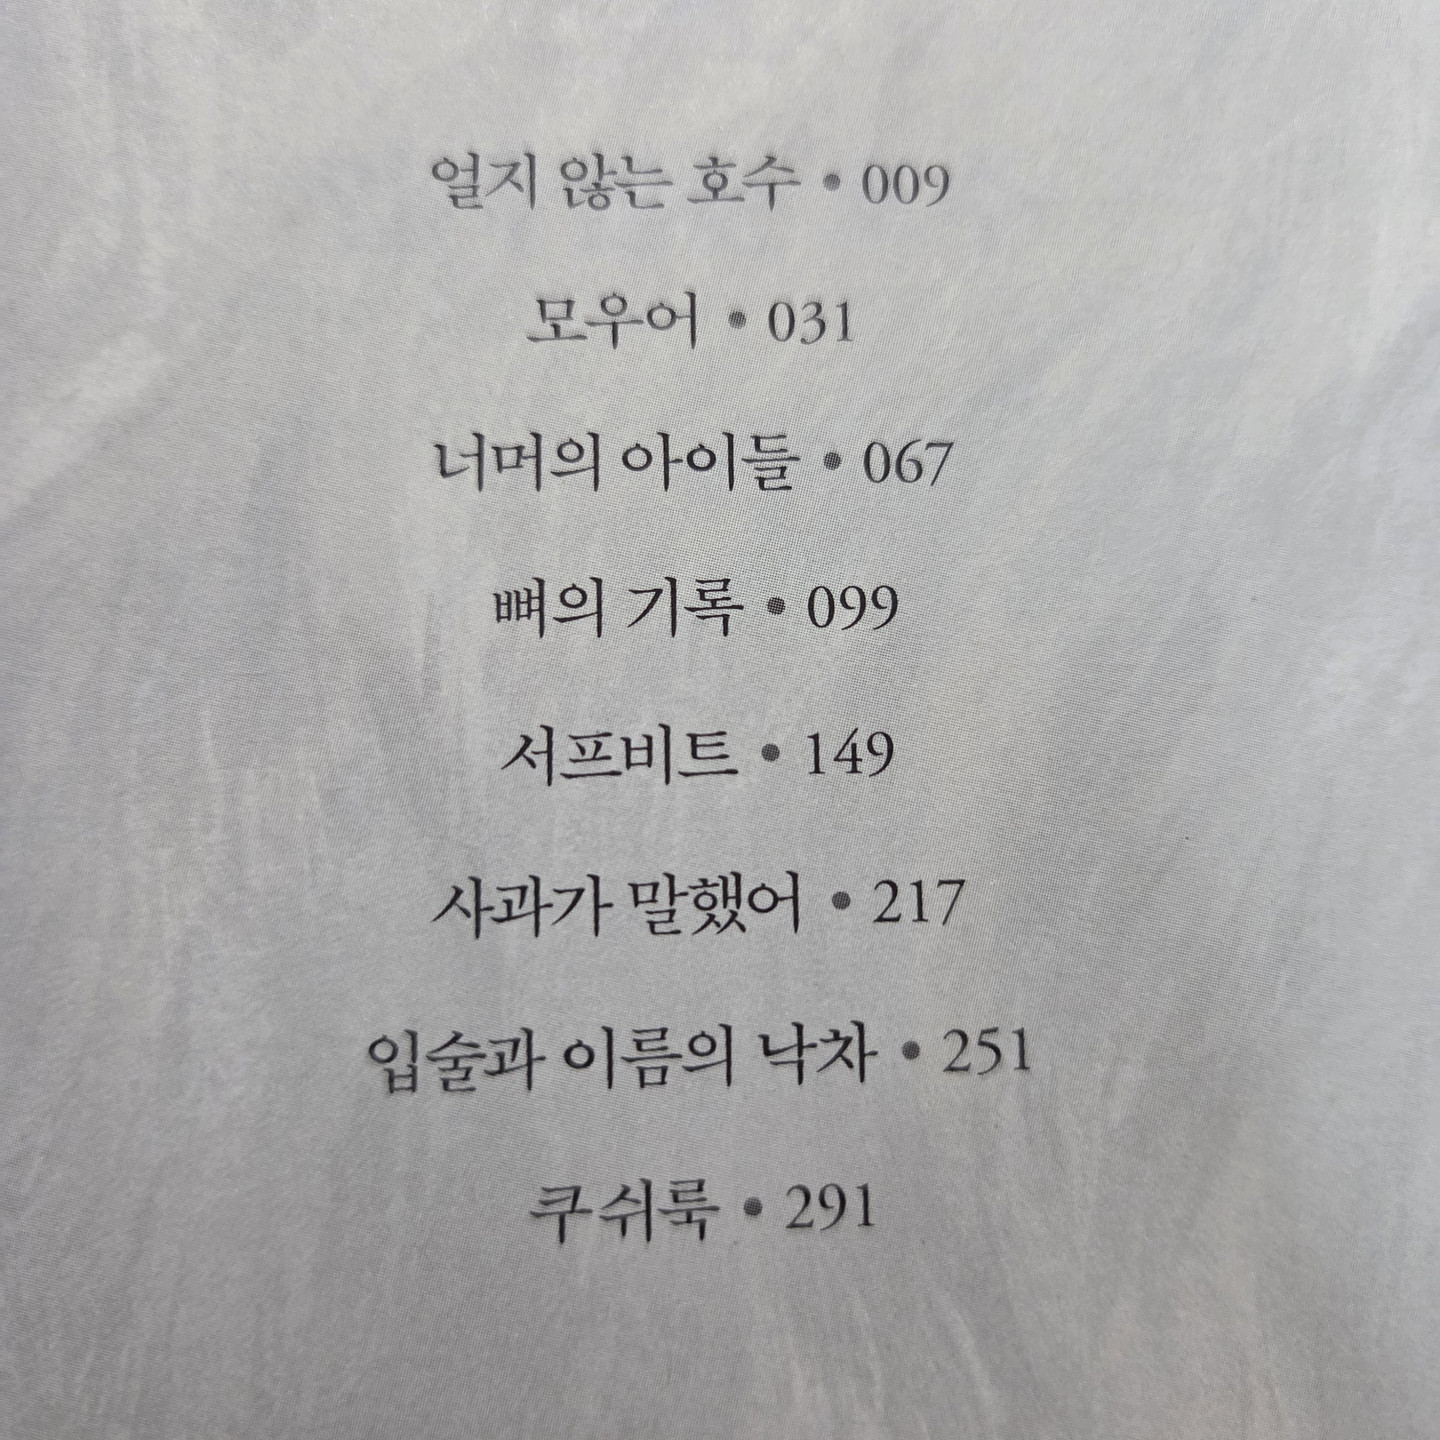 얼지 않는 호수 • 009
모우어 • 031
너머의 아이들 • 067
뼈의 기록 • 099
서프비트 • 149
사과가 말했어 • 217
입술과 이름의 낙차 • 251
쿠쉬룩 • 291